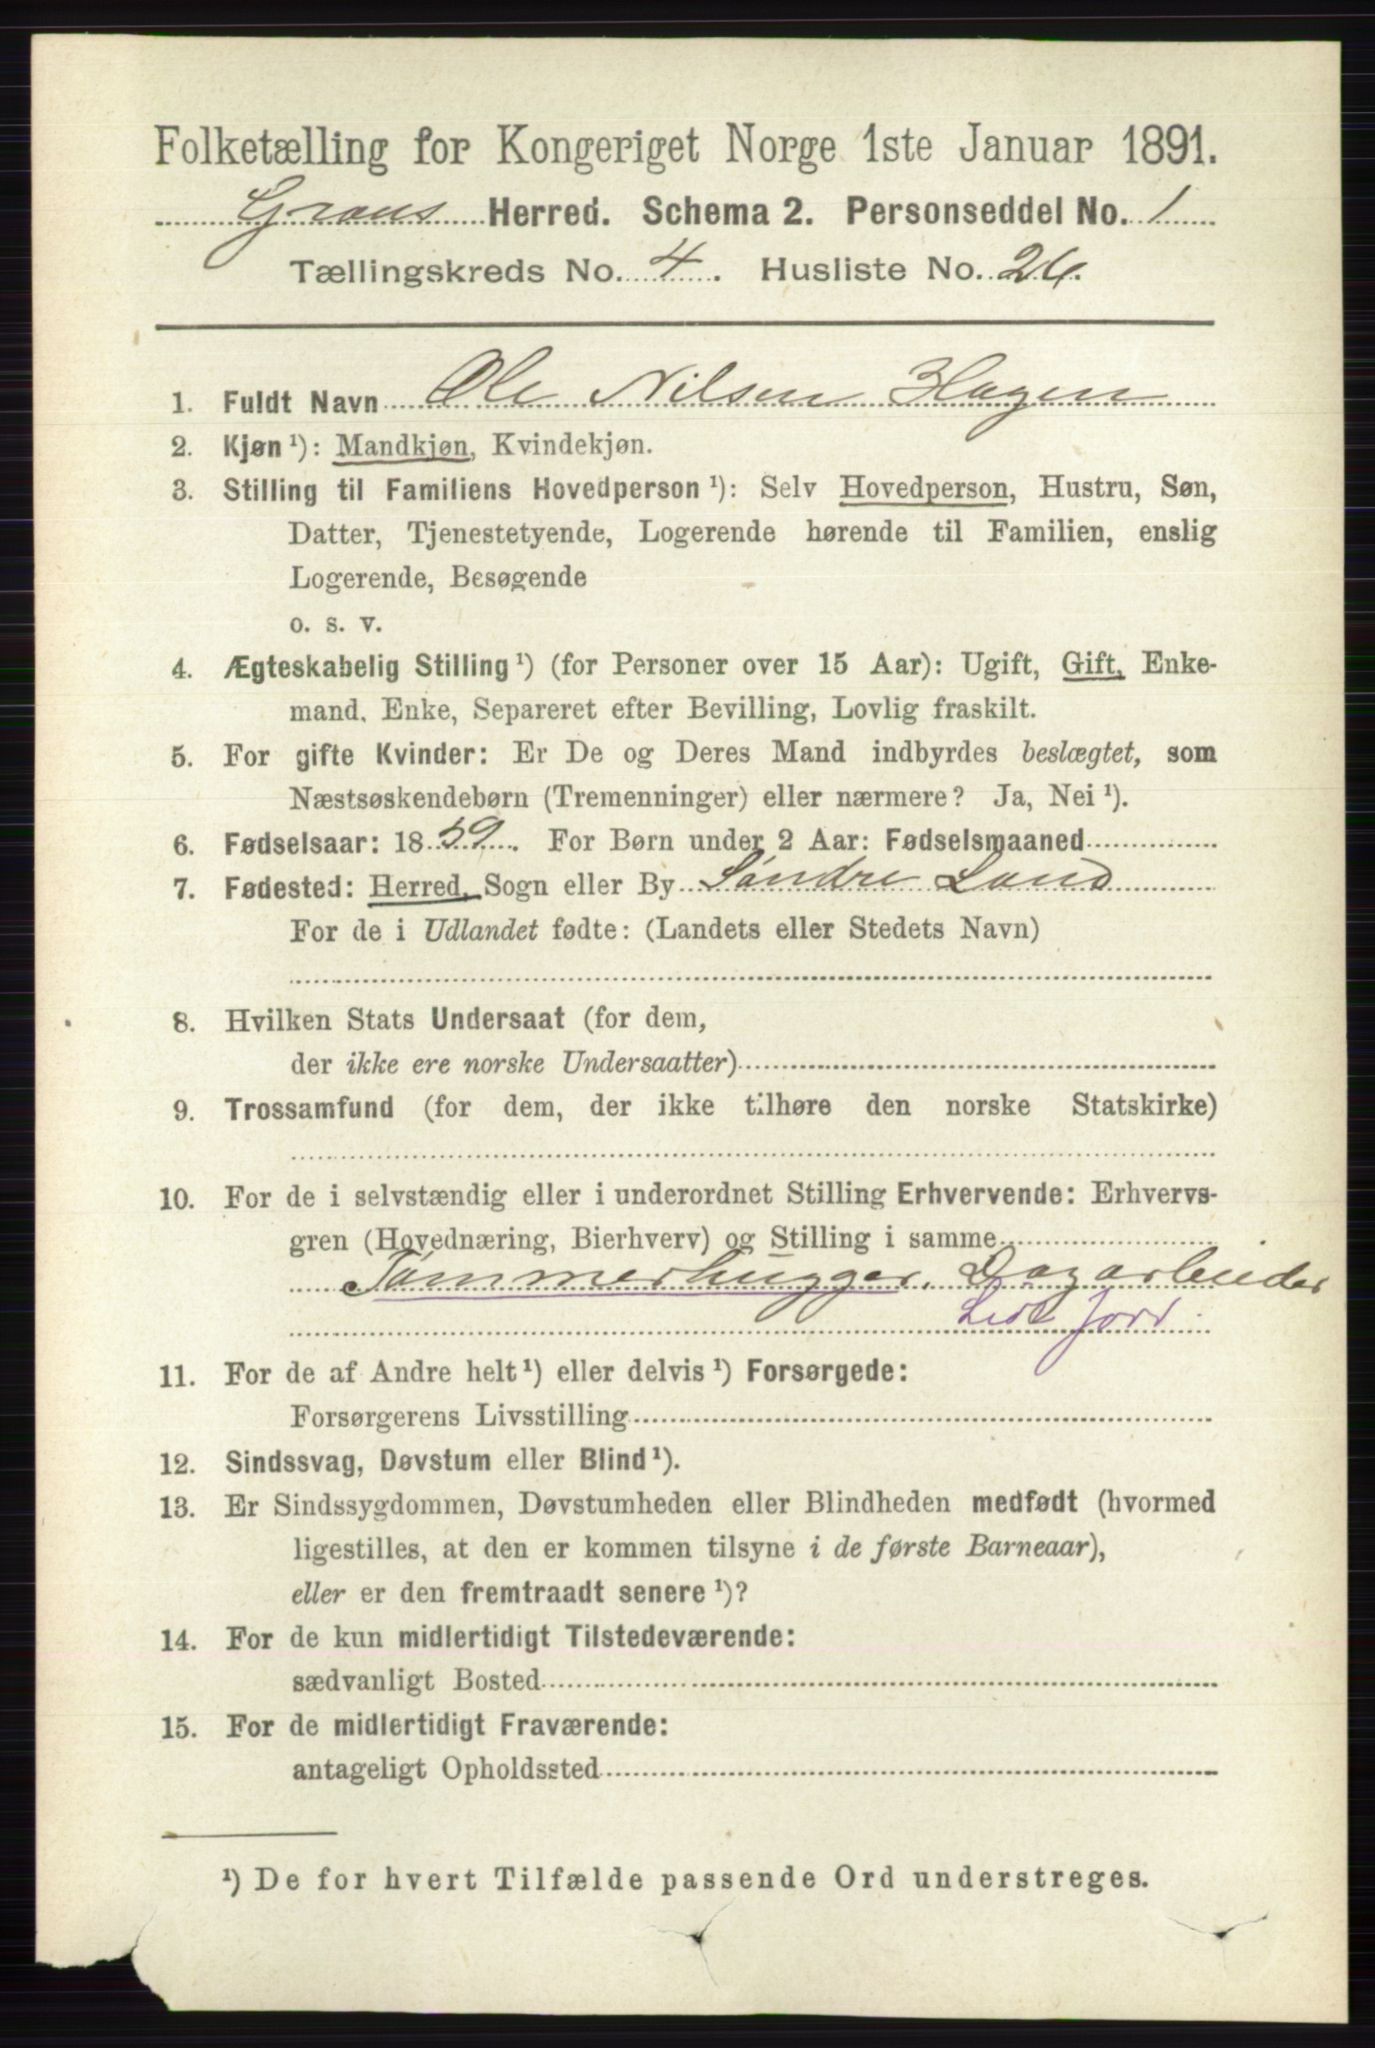 Folketælling for Kongeriget Norge 1ste Januar 1891.
Grans Herred. Schema 2. Personseddel No. 1
Tællingskreds No. 4. Husliste No. 26.
1. Fuldt Navn Ole Nilsen Hagen
2. Kjøn ¹): Mandkjøn, Kvindekjøn.
3. Stilling til Familiens Hovedperson ¹): Selv Hovedperson, Hustru, Søn,
Datter, Tjenestetyende, Logerende hørende til Familien, enslig
Logerende, Besøgende
o. s. v.
4. Ægteskabelig Stilling ¹) (for Personer over 15 Aar): Ugift, Gift, Enke-
mand, Enke, Separeret efter Bevilling, Lovlig fraskilt.
5. For gifte Kvinder: Er De og Deres Mand indbyrdes beslægtet, som
Næstsøskendebørn (Tremenninger) eller nærmere? Ja, Nei ¹).
6. Fødselsaar: 1859. For Børn under 2 Aar: Fødselsmaaned
7. Fødested: Herred, Sogn eller By Søndre Land
For de i Udlandet fødte: (Landets eller Stedets Navn)
8. Hvilken Stats Undersaat (for dem,
der ikke ere norske Undersaatter)
9. Trossamfund (for dem, der ikke tilhøre den norske Statskirke)
10. For de i selvstændig eller i underordnet Stilling Erhvervende: Erhvervs-
gren (Hovednæring, Bierhverv) og Stilling i samme
Tømmerhugger, Dagarbeider
Lidt Jord
11. For de af Andre helt ¹) eller delvis ¹) Forsørgede:
Forsørgerens Livsstilling
12. Sindssvag, Døvstum eller Blind ¹).
13. Er Sindssygdommen, Døvstumheden eller Blindheden medfødt (hvormed
ligestilles, at den er kommen tilsyne i de første Barneaar),
eller er den fremtraadt senere ¹)?
14. For de kun midlertidigt Tilstedeværende:
sædvanligt Bosted
15. For de midlertidigt Fraværende:
antageligt Opholdssted
¹) De for hvert Tilfælde passende Ord understreges.